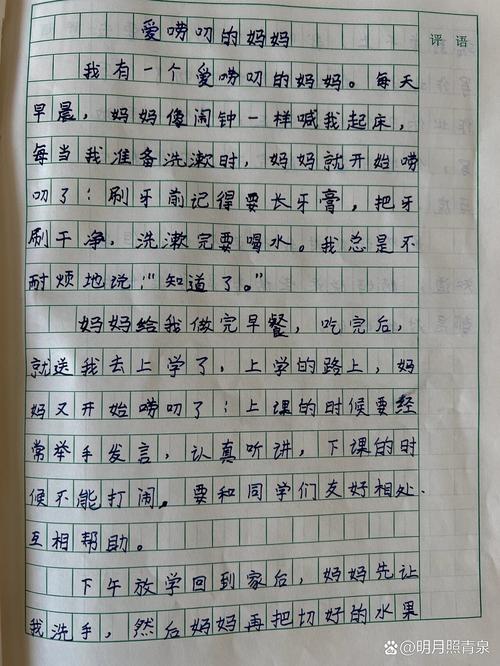 爱唠叨的妈妈
评语
我有一个爱唠叨的妈妈。每天
早晨，妈妈像闹钟一样喊我起床，
每当我准备洗漱时，妈妈就开始唠
叨了：刷牙前记得要长牙膏，把牙
刷干净，洗漱完要喝水。我总是不
耐烦地说：“知道了。”
妈妈给我做完早餐，吃完后，
就送我去上学了，上学的路上，妈
妈又开始唠叨了：上课的时候要经
常举手发言，认真听讲，下课的时
候不能打闹。要和同学们友好相处.
互相帮助。
下午放学回到家后，妈妈先让
我洗手，然后妈妈再把切好的水果
@明月照青泉